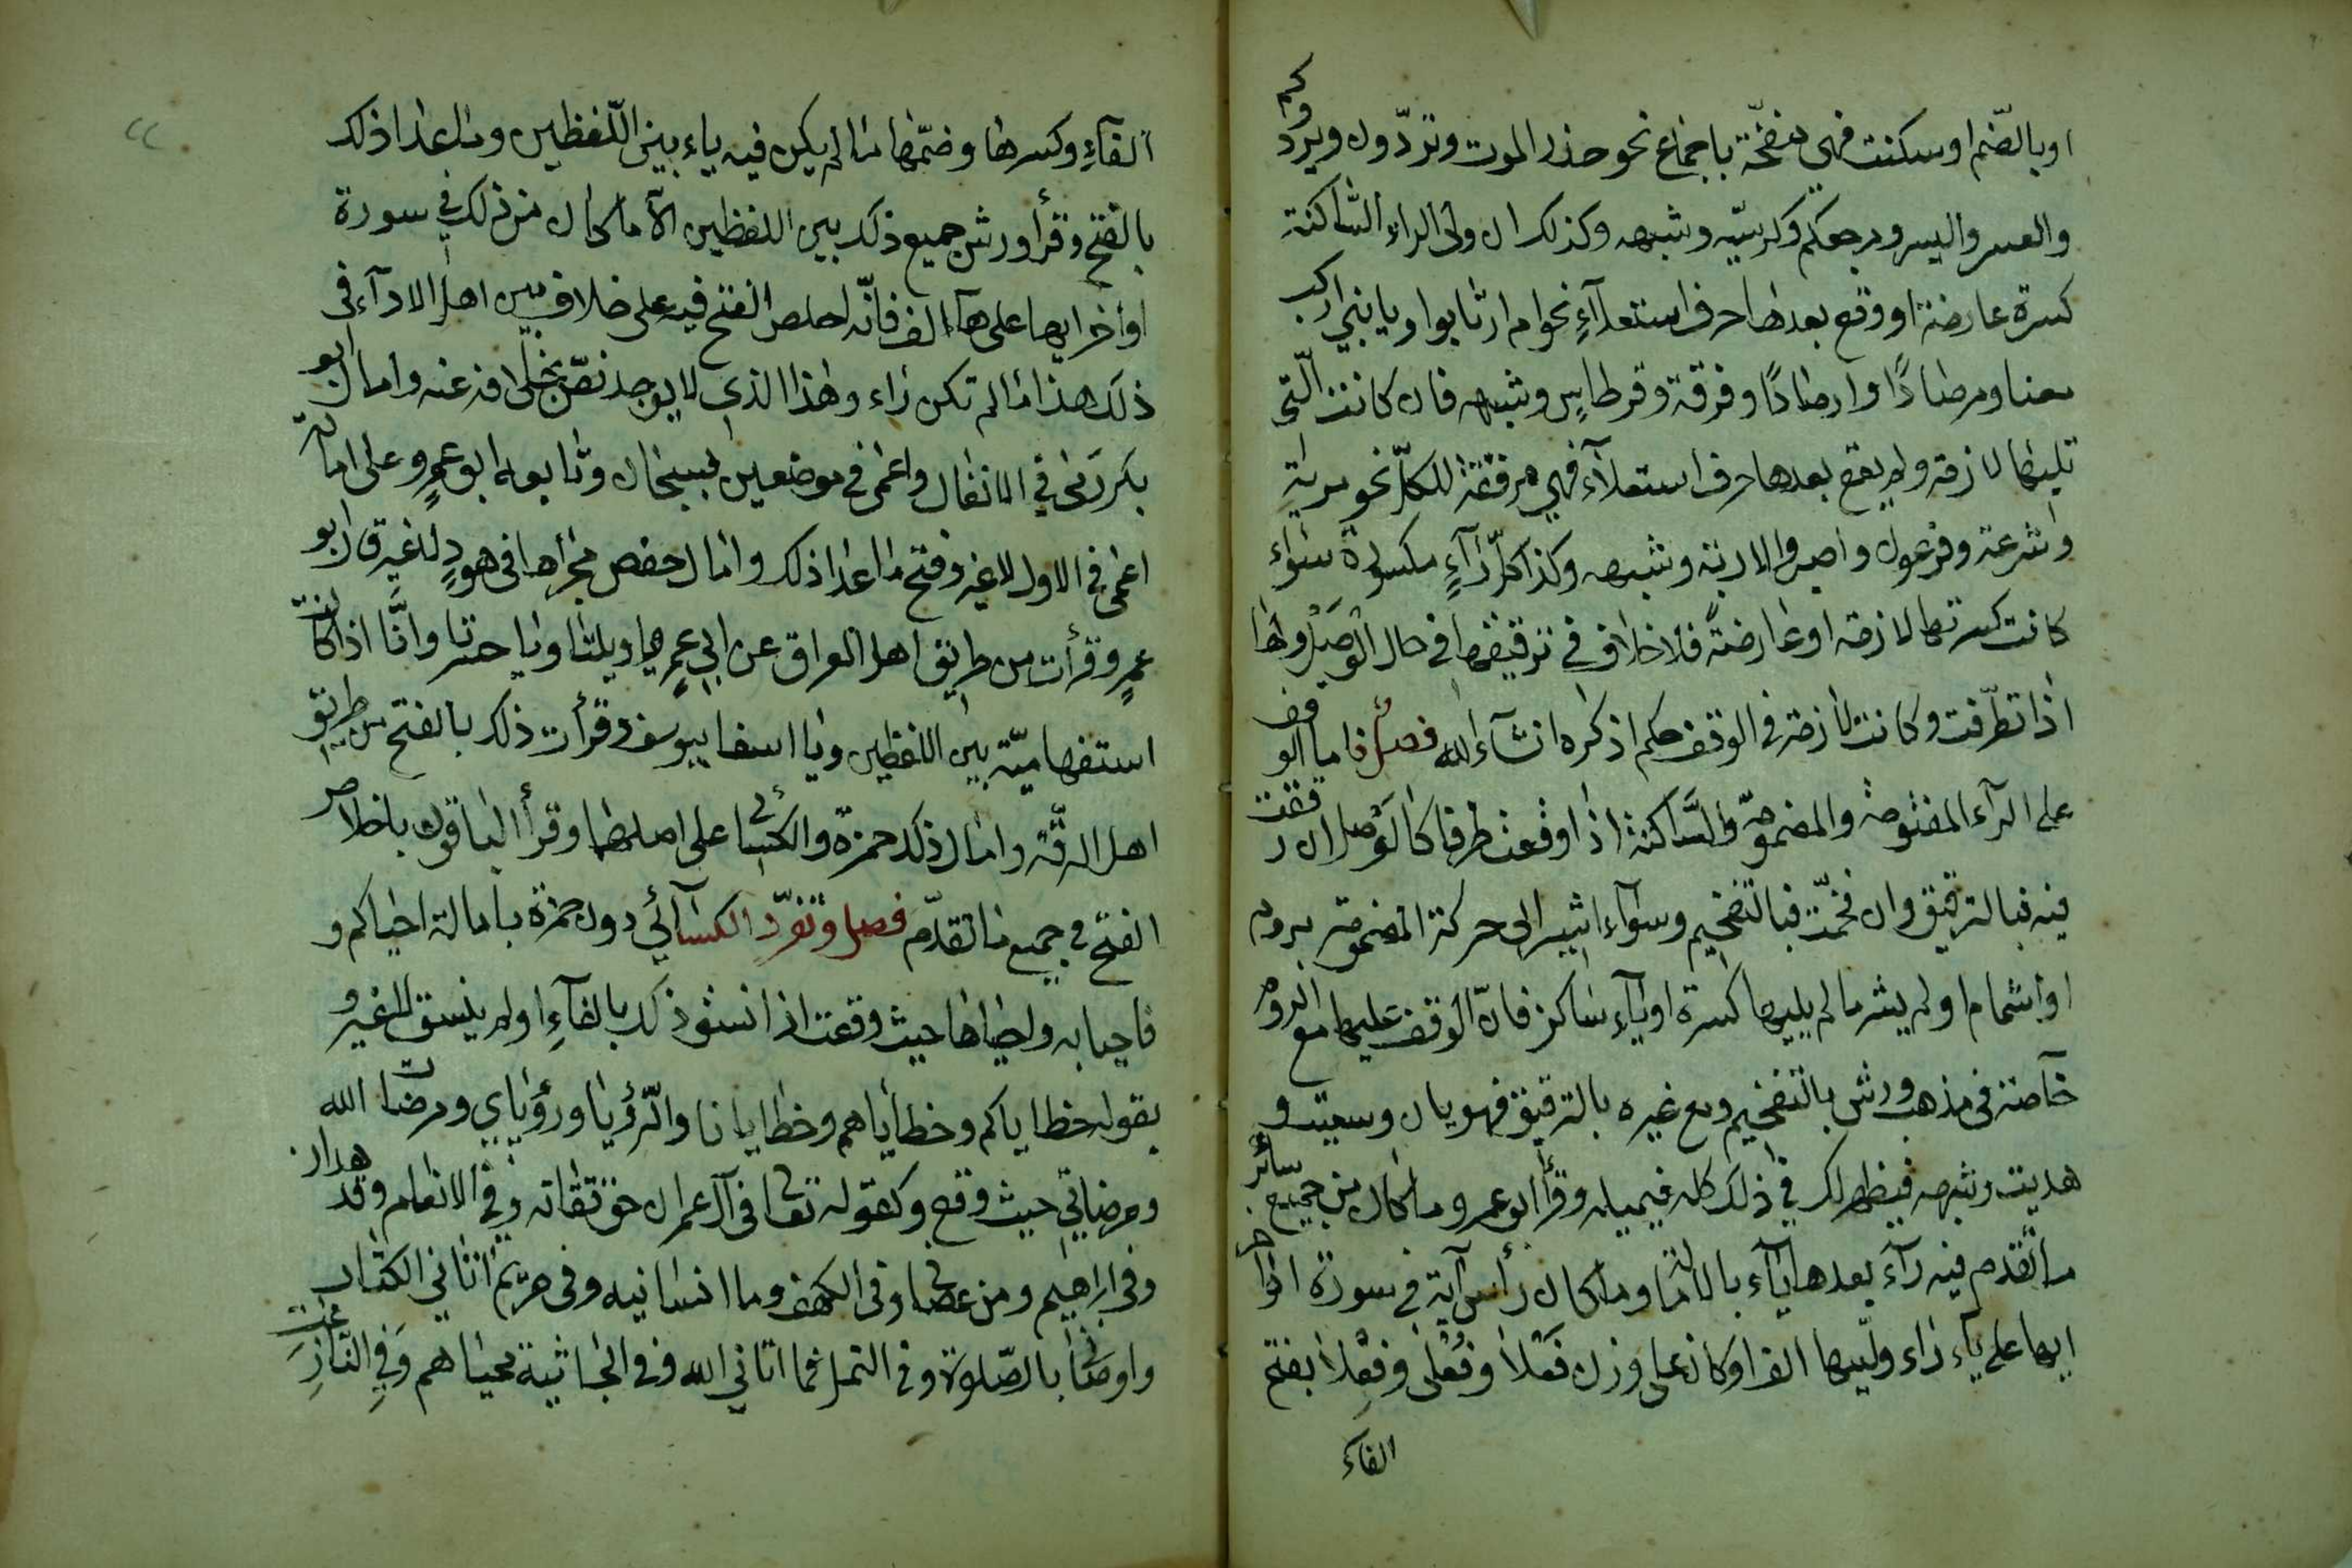 او بالضّم او سكنت فهي مفخّمة باجماع نحو حذر الموت وتردّون ويردّوكم
والعسر واليسر ومرجعكم وكرسيّه وشبهه وكذلك ان ولى الراء الساكنة
كسرة عارضة او وقع بعدها حرف استعلآءٍ نحو ام ارتابوا ويا بنيّ اركب
معنا ومرصادًا وارصادًا وفرقة وقرطاسٍ وشبهه فان كانت الّتي
تليها لازمة ولم يقع بعدها حرف استعلآء فهي مرقّقة للكلّ نحو مرية
وشرعة وفرعون واصبر والاربة وشبهه وكذا كلّ رآءٍ مكسورة سوآء
كانت كسرتها لازمة او عارضةً فلا خلاف في ترقيقها في حال الوصل ولها
اذا تطرّفت وكانت لازمة في الوقف حكم اذكره انشآء الله فصل فاما الوقف
على الرآء المفتوحة والمضمومة والسّاكنة اذا وقعت طرفا كالوصل ان رققت
فيه فبالترقيق وان فخّمت فبالتفخيم وسوآء اشير الى حركة المضمومة بروم
او اشمام او لم يشر ما لم يليها كسرة او يآء ساكن فانّ الوقف عليها مع الروم
خآصة في مذهب ورش بالتفخيم ومع غيره بالترقيق فهو يان وسعيت و
هديت وشبهه فيظهر لك في ذلك كله فيميله وقرأ ابو عمرو ما كان من جميع سائر
ما تقدم فيه رآء بعدها يآء بالامالة وما كان رأس آية في سورة اواخر
ايها على يآء راء وليها الف او كان على وزن فَعلى وفُعلى وفِعلى بفتح
الفآء
الفآءِ وكسرها وضمّها ما لم يكن فيه ياء بين اللّفظين وما عدا ذلك
بالفتح وقرأ ورش جميع ذلك بين اللفظين الّا ما كان من ذلك في سورة
اواخر ايها على هآء الف فانّه اخلص الفتح فيه على خلاف بين اهل الادآء في
ذلك هذا ما لم تكن راء وهذا الذي لا يوجد نصّ بخلافه عنه وامال ابو
بكر رمى في الانفال واعمى في موضعين بسبحان وتابعه ابو عمرٍو على امالة
اعمى في الاول لا غير وفتح ما عدا ذلك وامال حفص مجراها في هودٍ لا غير قرا ابو
عمرٍو قرأت من طريق اهل العراق عن ابي عمرٍو يا ويلتا ويا حسرتا وانَّا اذا كانت
استفهاميّة بين اللفظين ويا اسفا بيوسف وقرأت ذلك بالفتح من طريق
اهل الرقّة وامال ذلك حمزة والكسائي على اصلهما وقرأ الباقون باخلاص
الفتح في جميع ما تقدّم فصل وتفرّد الكسآئي دون حمزة بامالة احياكم و
فاحيا به واحياها حيث وقعت اذا نسق ذلك بالفآءِ او لم ينسق لا غير و
بقوله خطاياكم وخطاياهم وخطايانا والرّؤيا ورؤياي ومرضات الله
ومرضاتي حيث وقع وكقوله تعالى في آل عمران حق تقاته وفي الانعام وقد هدان
وفي ابراهيم ومن عصاني وفي الكهف وما انسانيه وفي مريم اتاني الكتاب
واوصاني بالصّلوة وفي النمل فما اتاني الله وفي الجاثية محياهم وَفِي النازِعات